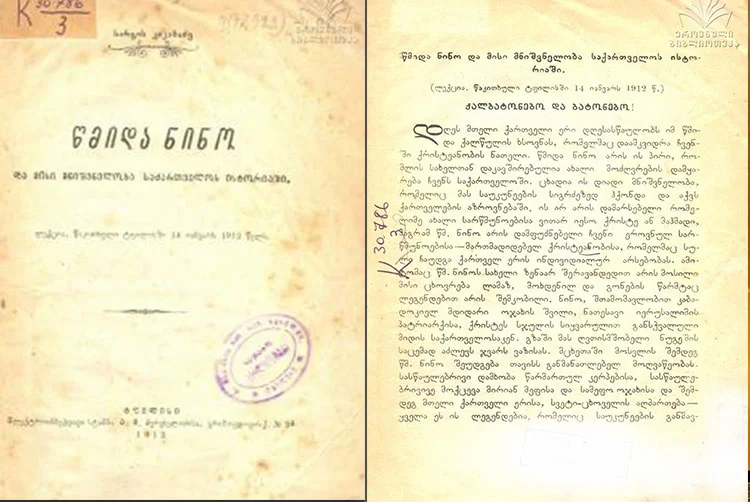 K 30.786
3
სარგის კაკაბაძე
წმიდა ნინო
და მისი მნიშვნელობა საქართველოს ისტორიაში.
ლექცია, წაკითხული ტფილისში 14 იანვარს 1912 წელს.
ტფილისი
1912
ეროვნული
ბიბლიოთეკა
წმიდა ნინო და მისი მნიშვნელობა საქართველოს ისტო-
რიაში.
(ლექცია, წაკითხული ტფილისში 14 იანვარს 1912 წ.)
ქალბატონებო და ბატონებო!
დღეს მთელი ქართველი ერი დღესასწაულობს იმ წმი-
და ქალწულის ხსოვნას, რომელმაც დაამკვიდრა ჩვენ-
ში ქრისტეანობის ნათელი. წმიდა ნინო არის ის პირი, რო-
მლის სახელთან დაკავშირებულია ახალი მოძღვრების დამყა-
რება ჩვენს საქართველოში. ცხადია ის დიადი მნიშვნელობა,
რომელიც მას საუკუნეების სიგრძეზედ ჰქონდა და აქვს
ქართველების აზროვნებაში. ის არ არის დამარსებელი რომე-
ლიმე ახალი სარწმუნოებისა ვითარ იესო ქრისტე ან მაჰმადი,
მაგრამ წმ. ნინო არის დამფუძნებელი ჩვენი ეროვნულ სარ-
წმუნოებისა—მართმადიდებელ ქრისტეანობისა, რომელმაც სუ-
ლი ჩაუდგა ქართველ ერის ინდივიდიალურ არსებობას. ამი-
ტომაც წმ. ნინოს სახელი ზენაარ შერავანდედით არის მოსილი
მისი ცხოვრება ლამაზ, მოხდენილ და გონების წარმტაც
ლეგენდებით არის შემკობილი. ნინო, შთამომავლობით კაბა-
დოკიელ მდიდარი ოჯახის შვილი, ნათესავი იერუსალიმის
პატრიარქისა, ქრისტეს სჯულის სიყვარულით განსჭვალული
მიდის საქართველოსაკენ. გზაში მას ღვთისმშობელი ნუგეშის
საცემად აძლევს ჯვარს ვაზისას. მცხეთაში მოსვლის შემდეგ
წმ. ნინო შეუდგება თავისს განმანათლებელ მოღვაწეობას.
სასწაულებრივი დამხობა წარმართულ კერპებისა, სასწაულე-
ბრივივე მოქცევა მირიან მეფისა და სამეფო ოჯახისა და შემ-
დეგ მთელი ქართველი ერისა, სვეტი-ცხოველის აღმართება—
ყველა ეს ის ლეგენდებია, რომელიც საუკუნეების განმავ-
K 30.786
3